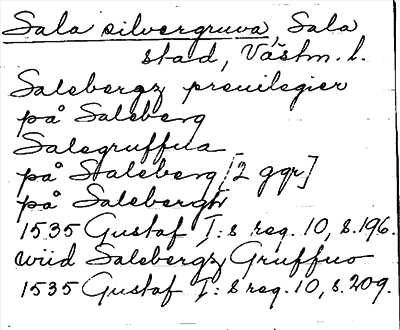 Sala silvergruva, Sala
stad, Västm. l.
Salebergz preuilegier
på Saleberg
Salegruffua
på Saleberg [2 ggr]
på Salebergit
1535 Gustaf I:s reg. 10, s. 196.
wiid Salebergz Gruffuo
1535 Gustaf I:s reg. 10, s. 209.